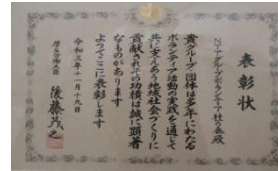 表彰状
貴グループ・団体は多年にわたる
ボランティア活動の実践を通して
共に支えあう地域社会づくりに
貢献されその功績は誠に顕著
なものがあります
よってここに表彰します
令和三年十一月十九日
厚生労働大臣 後藤茂之